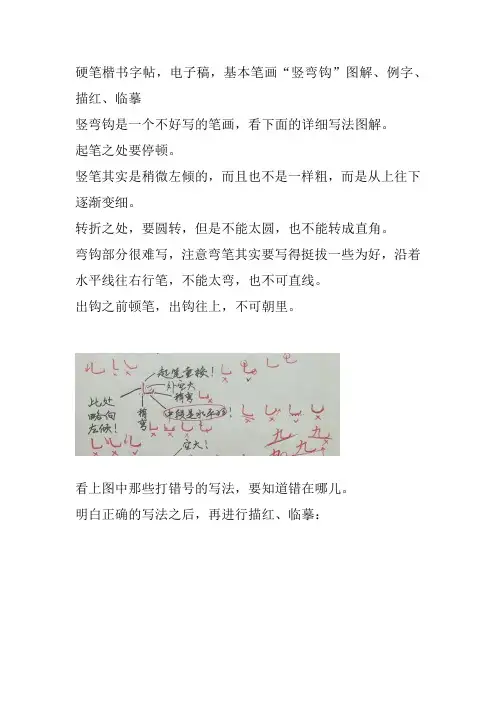 硬笔楷书字帖，电子稿，基本笔画“竖弯钩”图解、例字、
描红、临摹
竖弯钩是一个不好写的笔画，看下面的详细写法图解。
起笔之处要停顿。
竖笔其实是稍微左倾的，而且也不是一样粗，而是从上往下
逐渐变细。
转折之处，要圆转，但是不能太圆，也不能转成直角。
弯钩部分很难写，注意弯笔其实要写得挺拔一些为好，沿着
水平线往右行笔，不能太弯，也不可直线。
出钩之前顿笔，出钩往上，不可朝里。
起笔重按！
稍弯
此处
略向
左倾！
稍
弯
中段是水平的！
九
九
看上图中那些打错号的写法，要知道错在哪儿。
明白正确的写法之后，再进行描红、临摹：